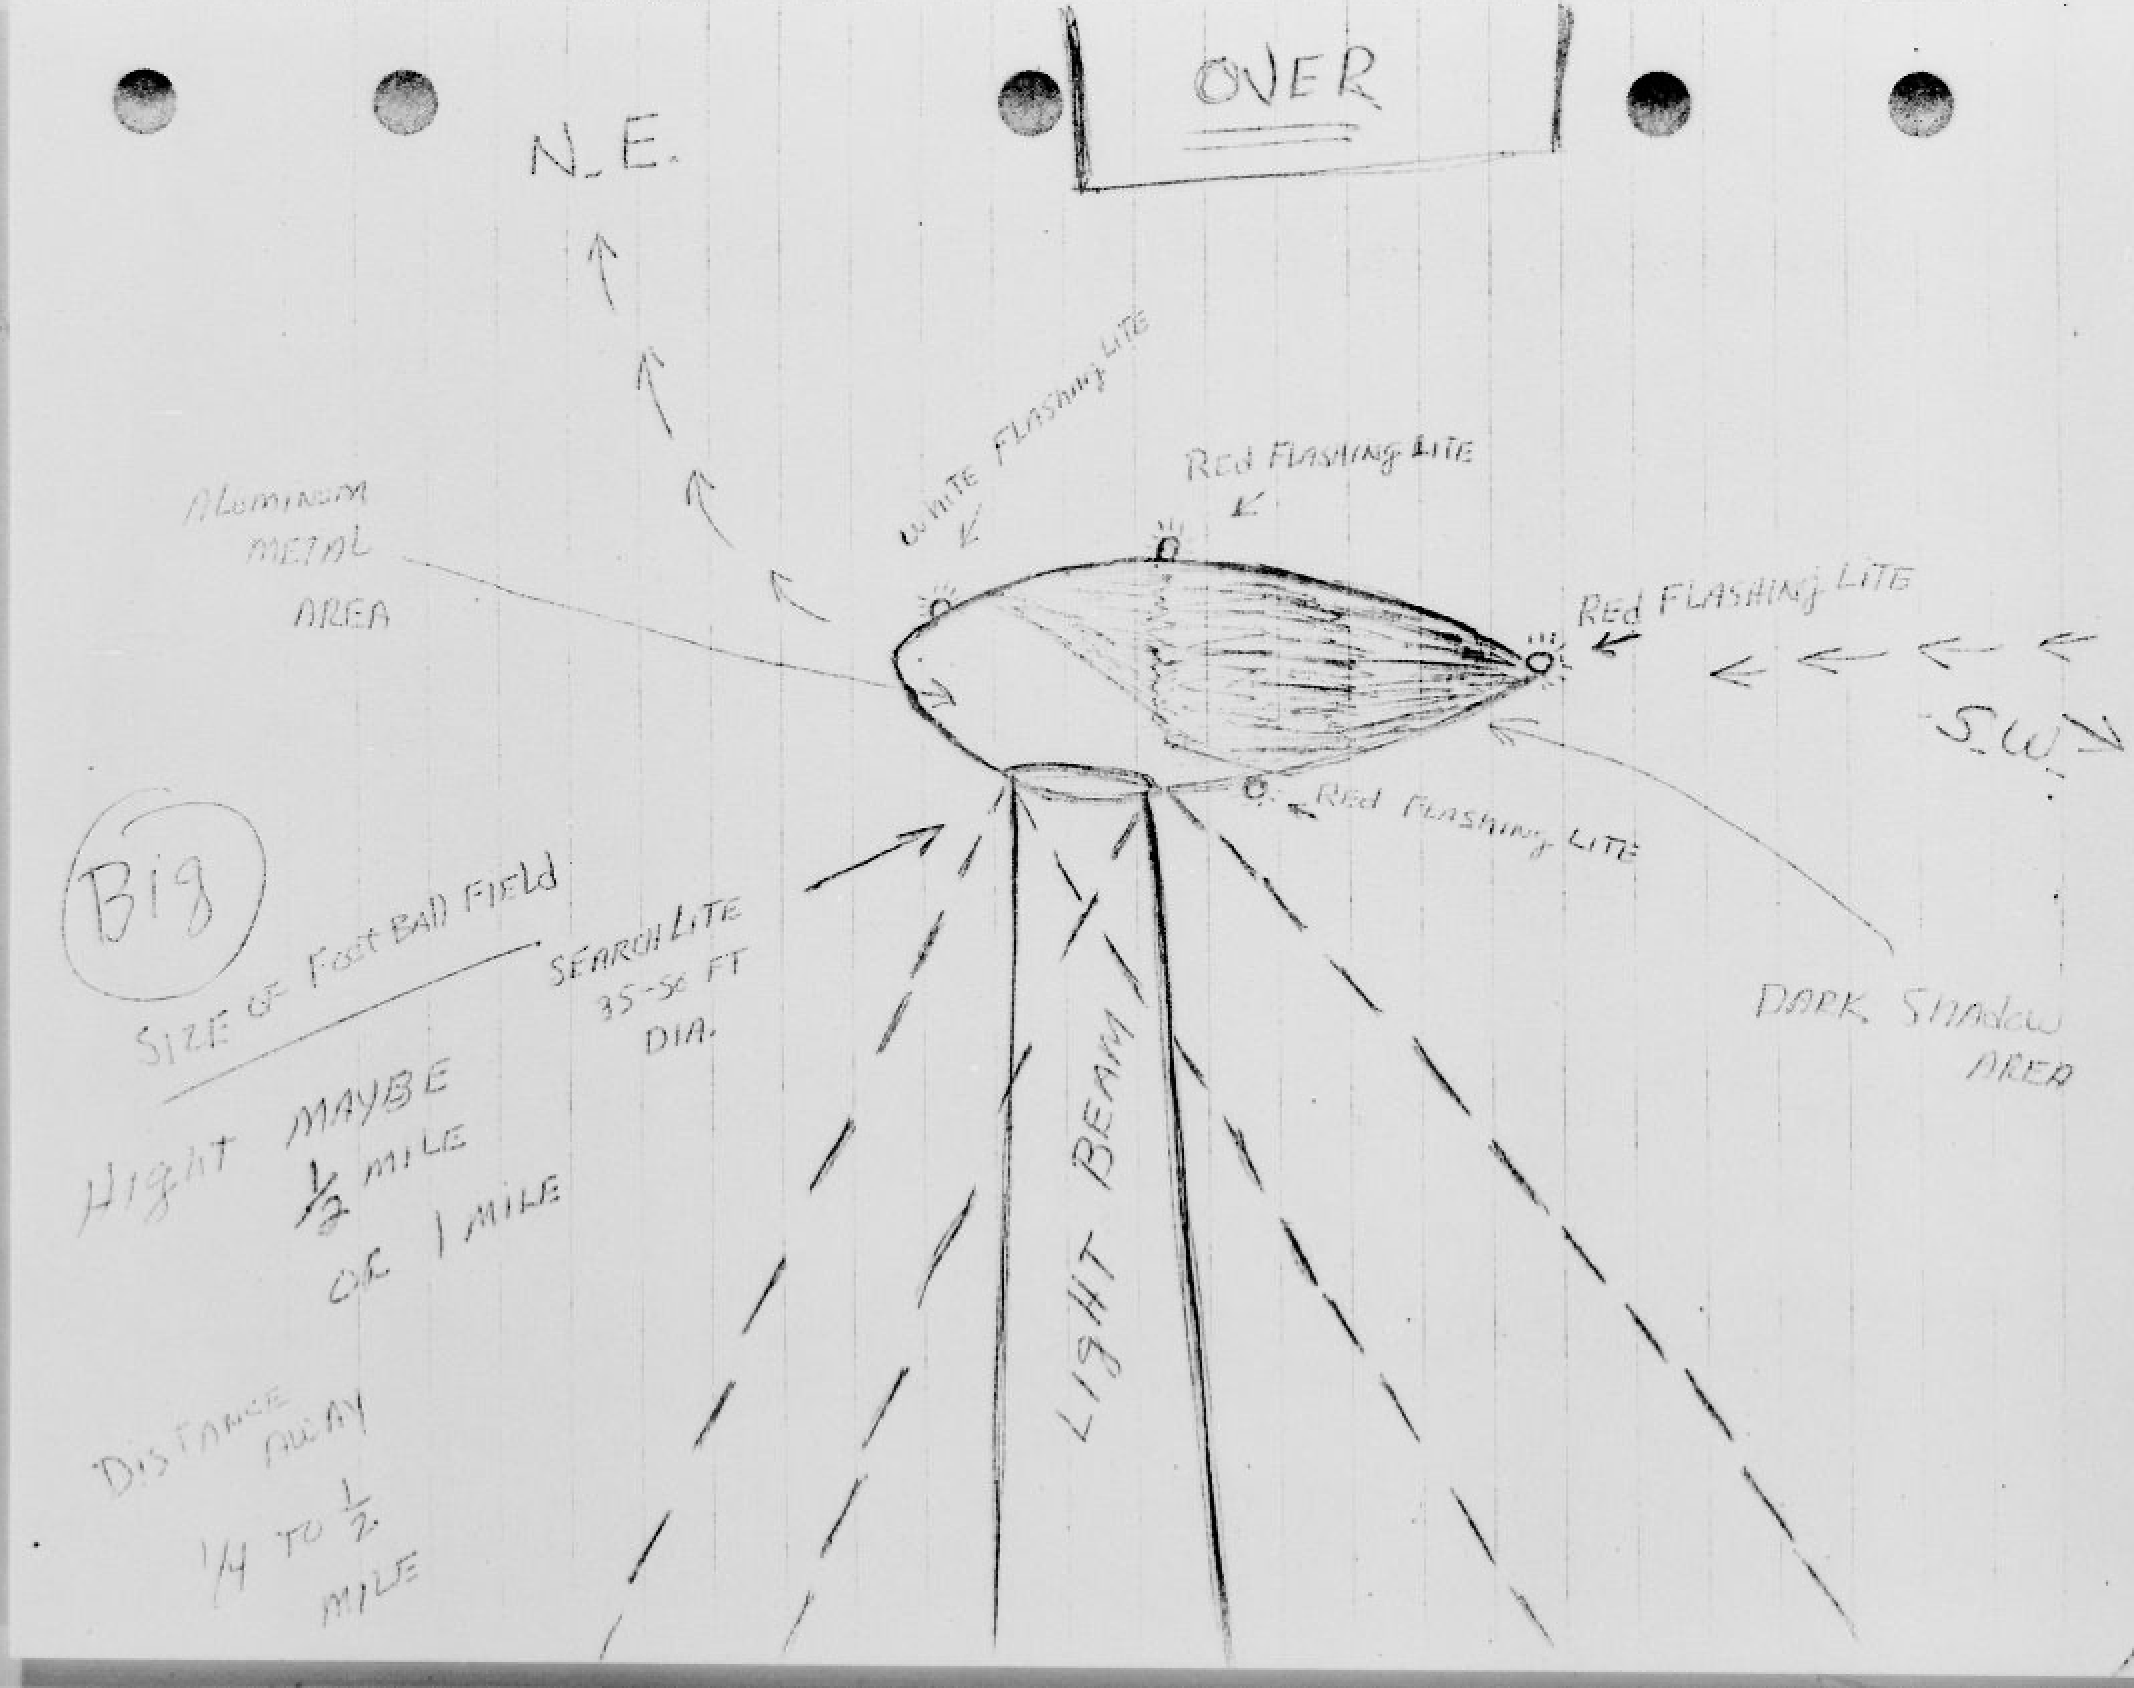 OVER
N. E.
WHITE FLASHING LITE
Red FLASHING LITE
ALUMINUM
METAL
AREA
Red FLASHING LITE
S.W.
Red FLASHING LITE
Big
SIZE OF FOOT BALL FIELD
SEARCH LITE
FT
DIA.
DARK SHADOW
AREA
HigHT MAYBE
1/2 MILE
OR 1 MILE
LIGHT BEAM
DISTANCE
AWAY
1/4 TO 1/2
MILE